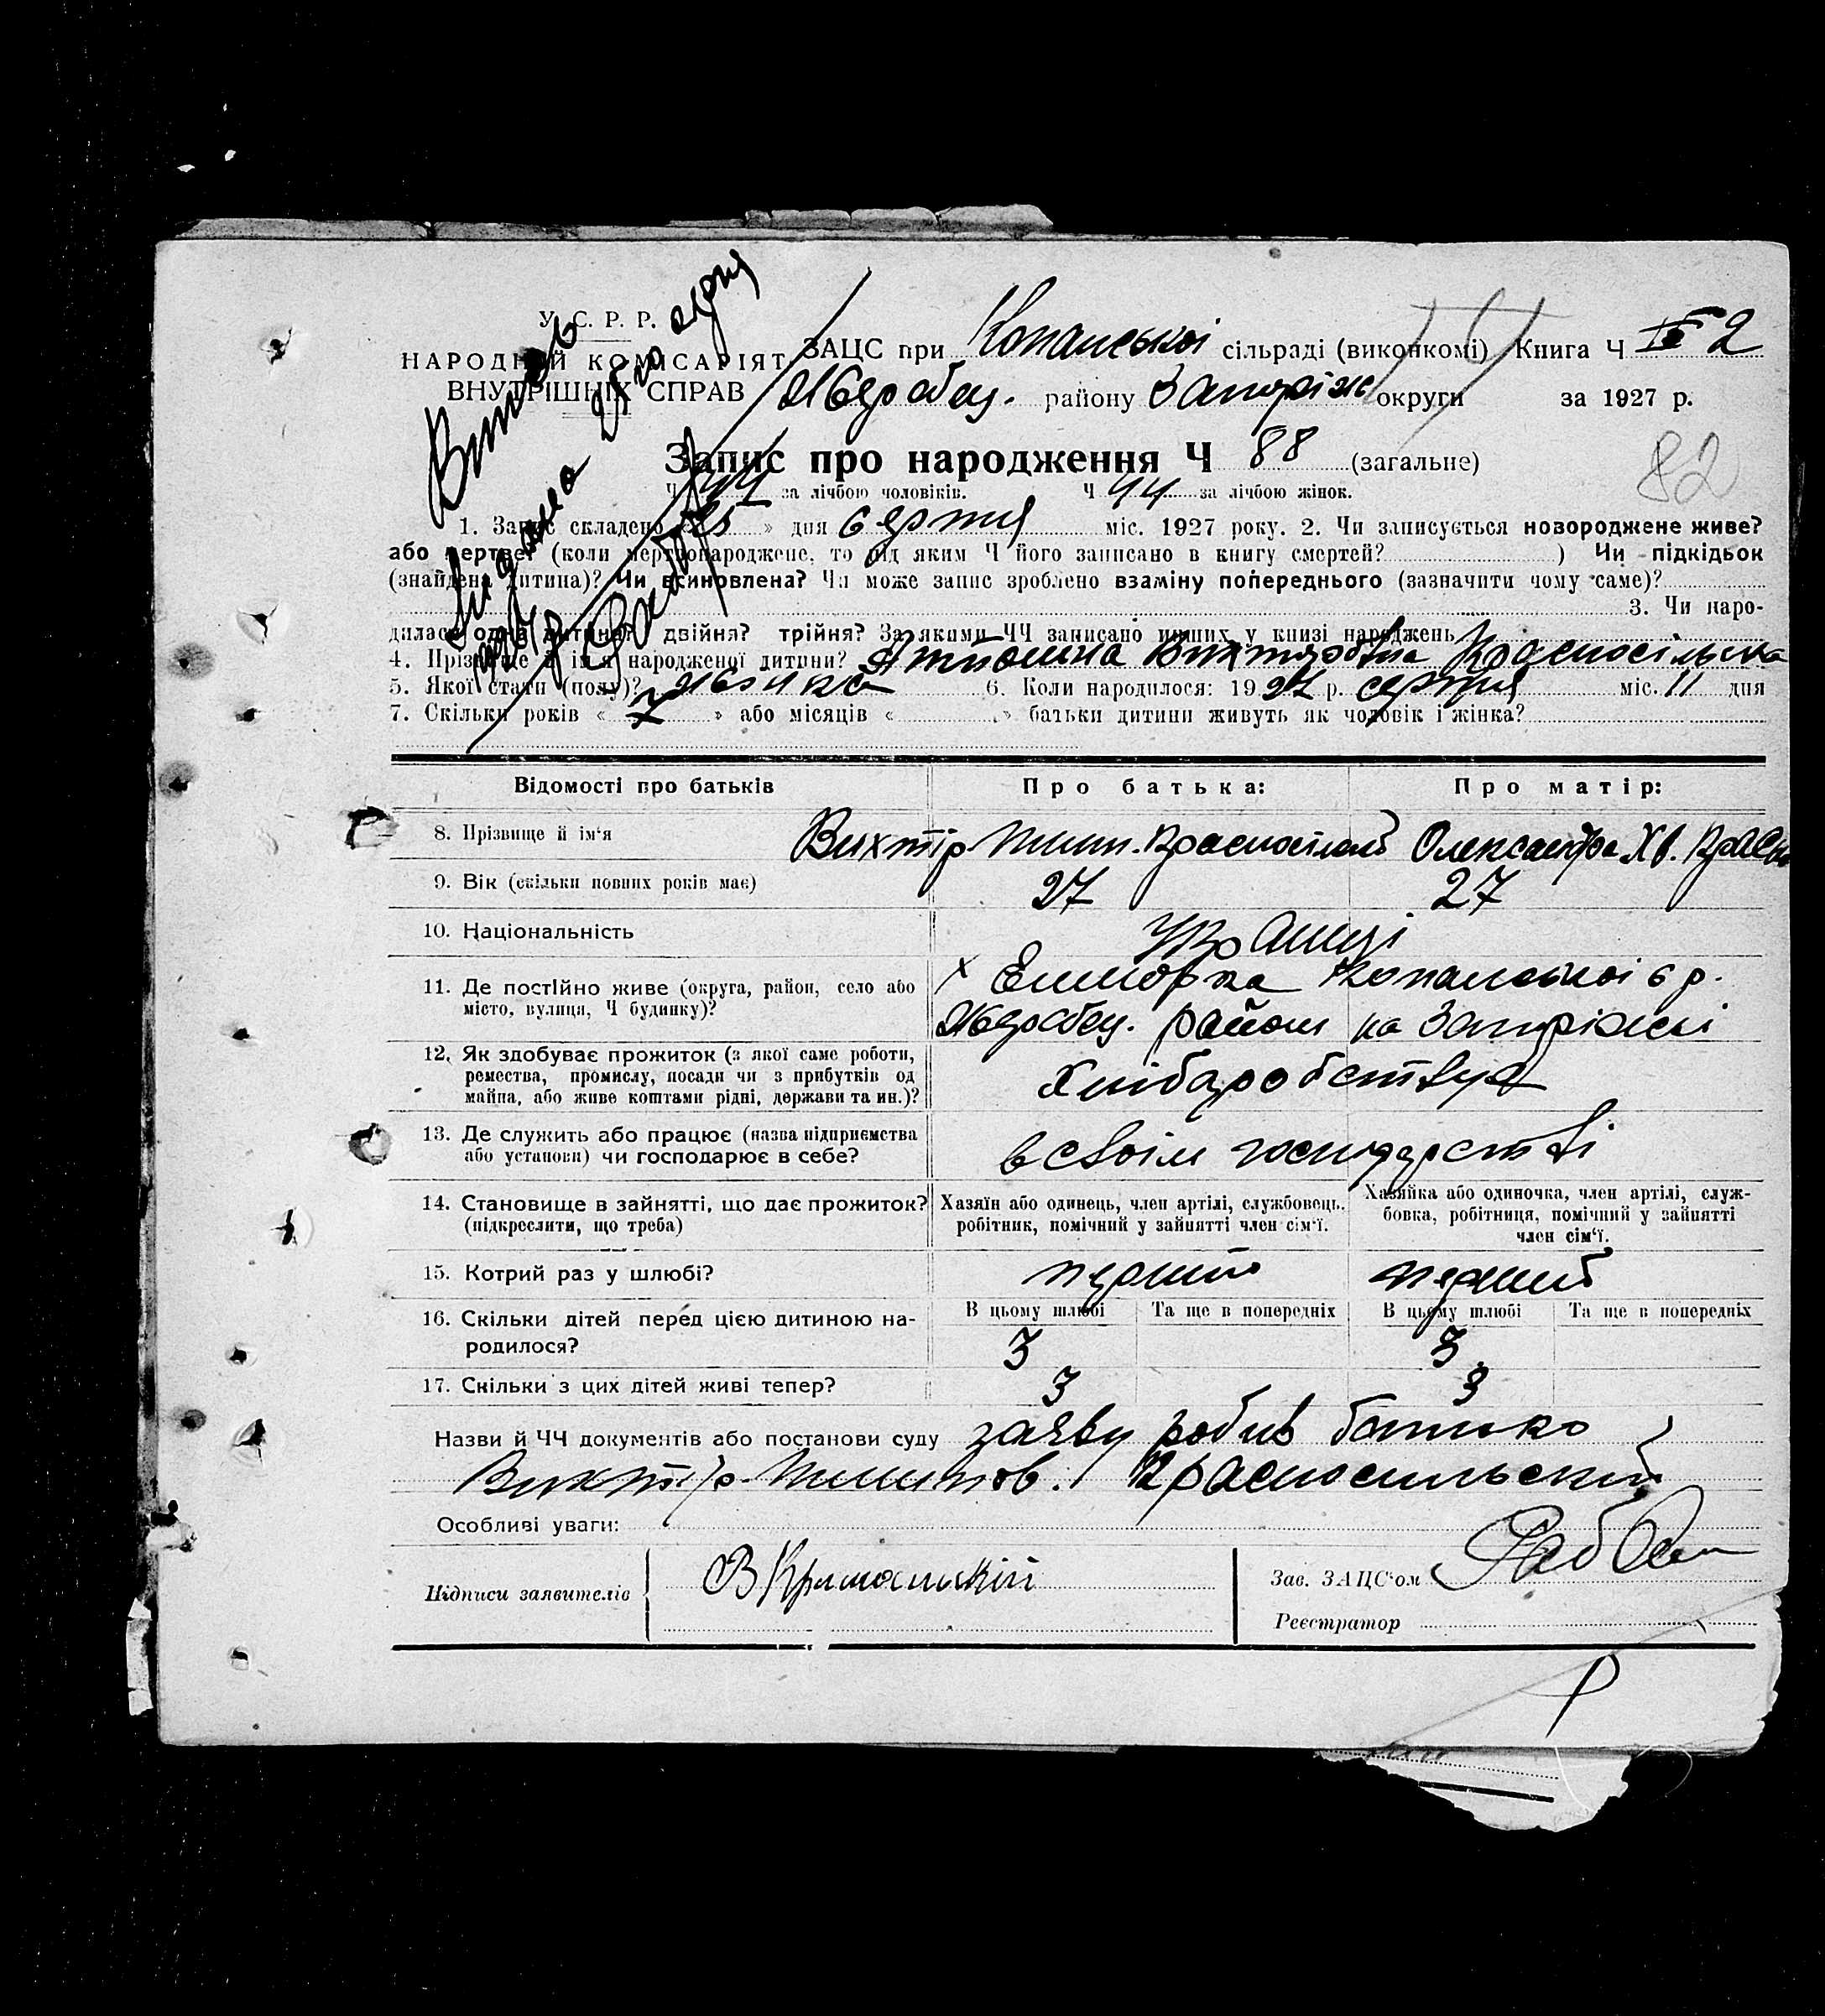 У. С. Р. Р.
НАРОДНІЙ КОМІСАРІЯТ
ВНУТРІШНІХ СПРАВ
ЗАЦС при Копанської сільраді (виконкомі) Книга Ч 2
району Запоріж округи за 1927 р.
Запис про народження Ч 88 (загальне)
82
Ч за лічбою чоловіків. Ч 44 за лічбою жінок.
1. Запис складено « » дня серпня міс. 1927 року. 2. Чи записується новороджене живе?
або мертве? (коли мертвонароджене, то під яким Ч його записано в книгу смертей? ) Чи підкідьок
(знайдена дитина)? Чи всиновлена? Чи може запис зроблено взаміну попереднього (зазначити чому саме)?
3. Чи наро-
дилася одна дитина? двійня? трійня? За якими ЧЧ записано инших у книзі народжень
4. Прізвище й ім'я народженої дитини? Красносільска
5. Якої стати (полу)? жінка 6. Коли народилося: 1927 р. серпня міс. 11 дня
7. Скільки років « 7 » або місяців « » батьки дитини живуть як чоловік і жінка?
Відомості про батьків Про батька: Про матір:
8. Прізвище й ім'я Вихтір Красносілский Олександра Хв. Красн
9. Вік (скільки повних років має) 27 27
10. Національність Українці
11. Де постійно живе (округа, район, село або
місто, вулиця, Ч будинку)?
х Копанської с р.
район на Запоріжжі
12. Як здобуває прожиток (з якої саме роботи,
ремества, промислу, посади чи з прибутків од
майна, або живе коштами рідні, держави та ин.)?
Хліборобствує
13. Де служить або працює (назва підприємства
або установи) чи господарює в себе?
в своїм господарстві
14. Становище в зайнятті, що дає прожиток?
(підкреслити, що треба)
Хазяїн або одинець, член артілі, службовець,
робітник, помічний у зайнятті член сім'ї.
Хазяйка або одиночка, член артілі, служ-
бовка, робітниця, помічний у зайнятті
член сім'ї.
15. Котрий раз у шлюбі? перший перший
16. Скільки дітей перед цією дитиною на-
родилося?
В цьому шлюбі Та ще в попередніх В цьому шлюбі Та ще в попередніх
3 3
17. Скільки з цих дітей живі тепер? 3 3
Назви й ЧЧ документів або постанови суду заяву робив батько
Виктір Красносильский
Особливі уваги:
Підписи заявителів
Зав. ЗАЦС'ом
Реєстратор